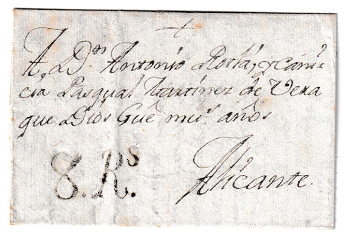 A, D.n Antonio Rotlá, y Cami
cia Pasqual Martinez de Vera
que Dios Gũe, ms. años
Alicante.
8. R.s